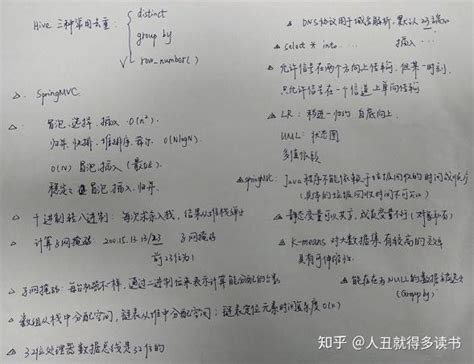 Hive 三种常用去重: distinct
group by
row_number()
△. SpringMVC
△ 冒泡.选择.插入 O(n²).
归并.快排.堆排序.希尔. O(NlogN)
O(N) 冒泡.插入 (最好).
稳定: 冒泡.插入.归并.
△ 十进制转八进制: 每次余存入栈, 结果从堆栈弹出
△ 计算子网掩码: 200.15.13.13/23 子网掩码
前23位为1
△ 子网掩码: 每台机器不一样, 通过二进制位来表示计算能分配的台数
△ 数组从栈中分配空间; 链表从堆中分配空间; 链表定位元素时间复杂度O(n)
△ 32位处理器数据总线是32位的
△ DNS协议用于域名解析, 默认23端口
△ select * into ... 插入...
△ 允许信号在两个方向上传输, 但某一时刻,
只允许信号在一个信道上单向传输
△ LR: 移进-归约 自底向上.
UML: 状态图
△ SpringMVC. Java程序不能依赖于垃圾回收的时间或顺序
(具体的垃圾回收时间不可知)
△ 静态变量可以共享, 成员变量不行 (对象私有)
△ K-means 对大数据集有较高的效率
具有可伸缩性.
△ 能存在为NULL的数据
(Group by)
知乎 @人丑就得多读书